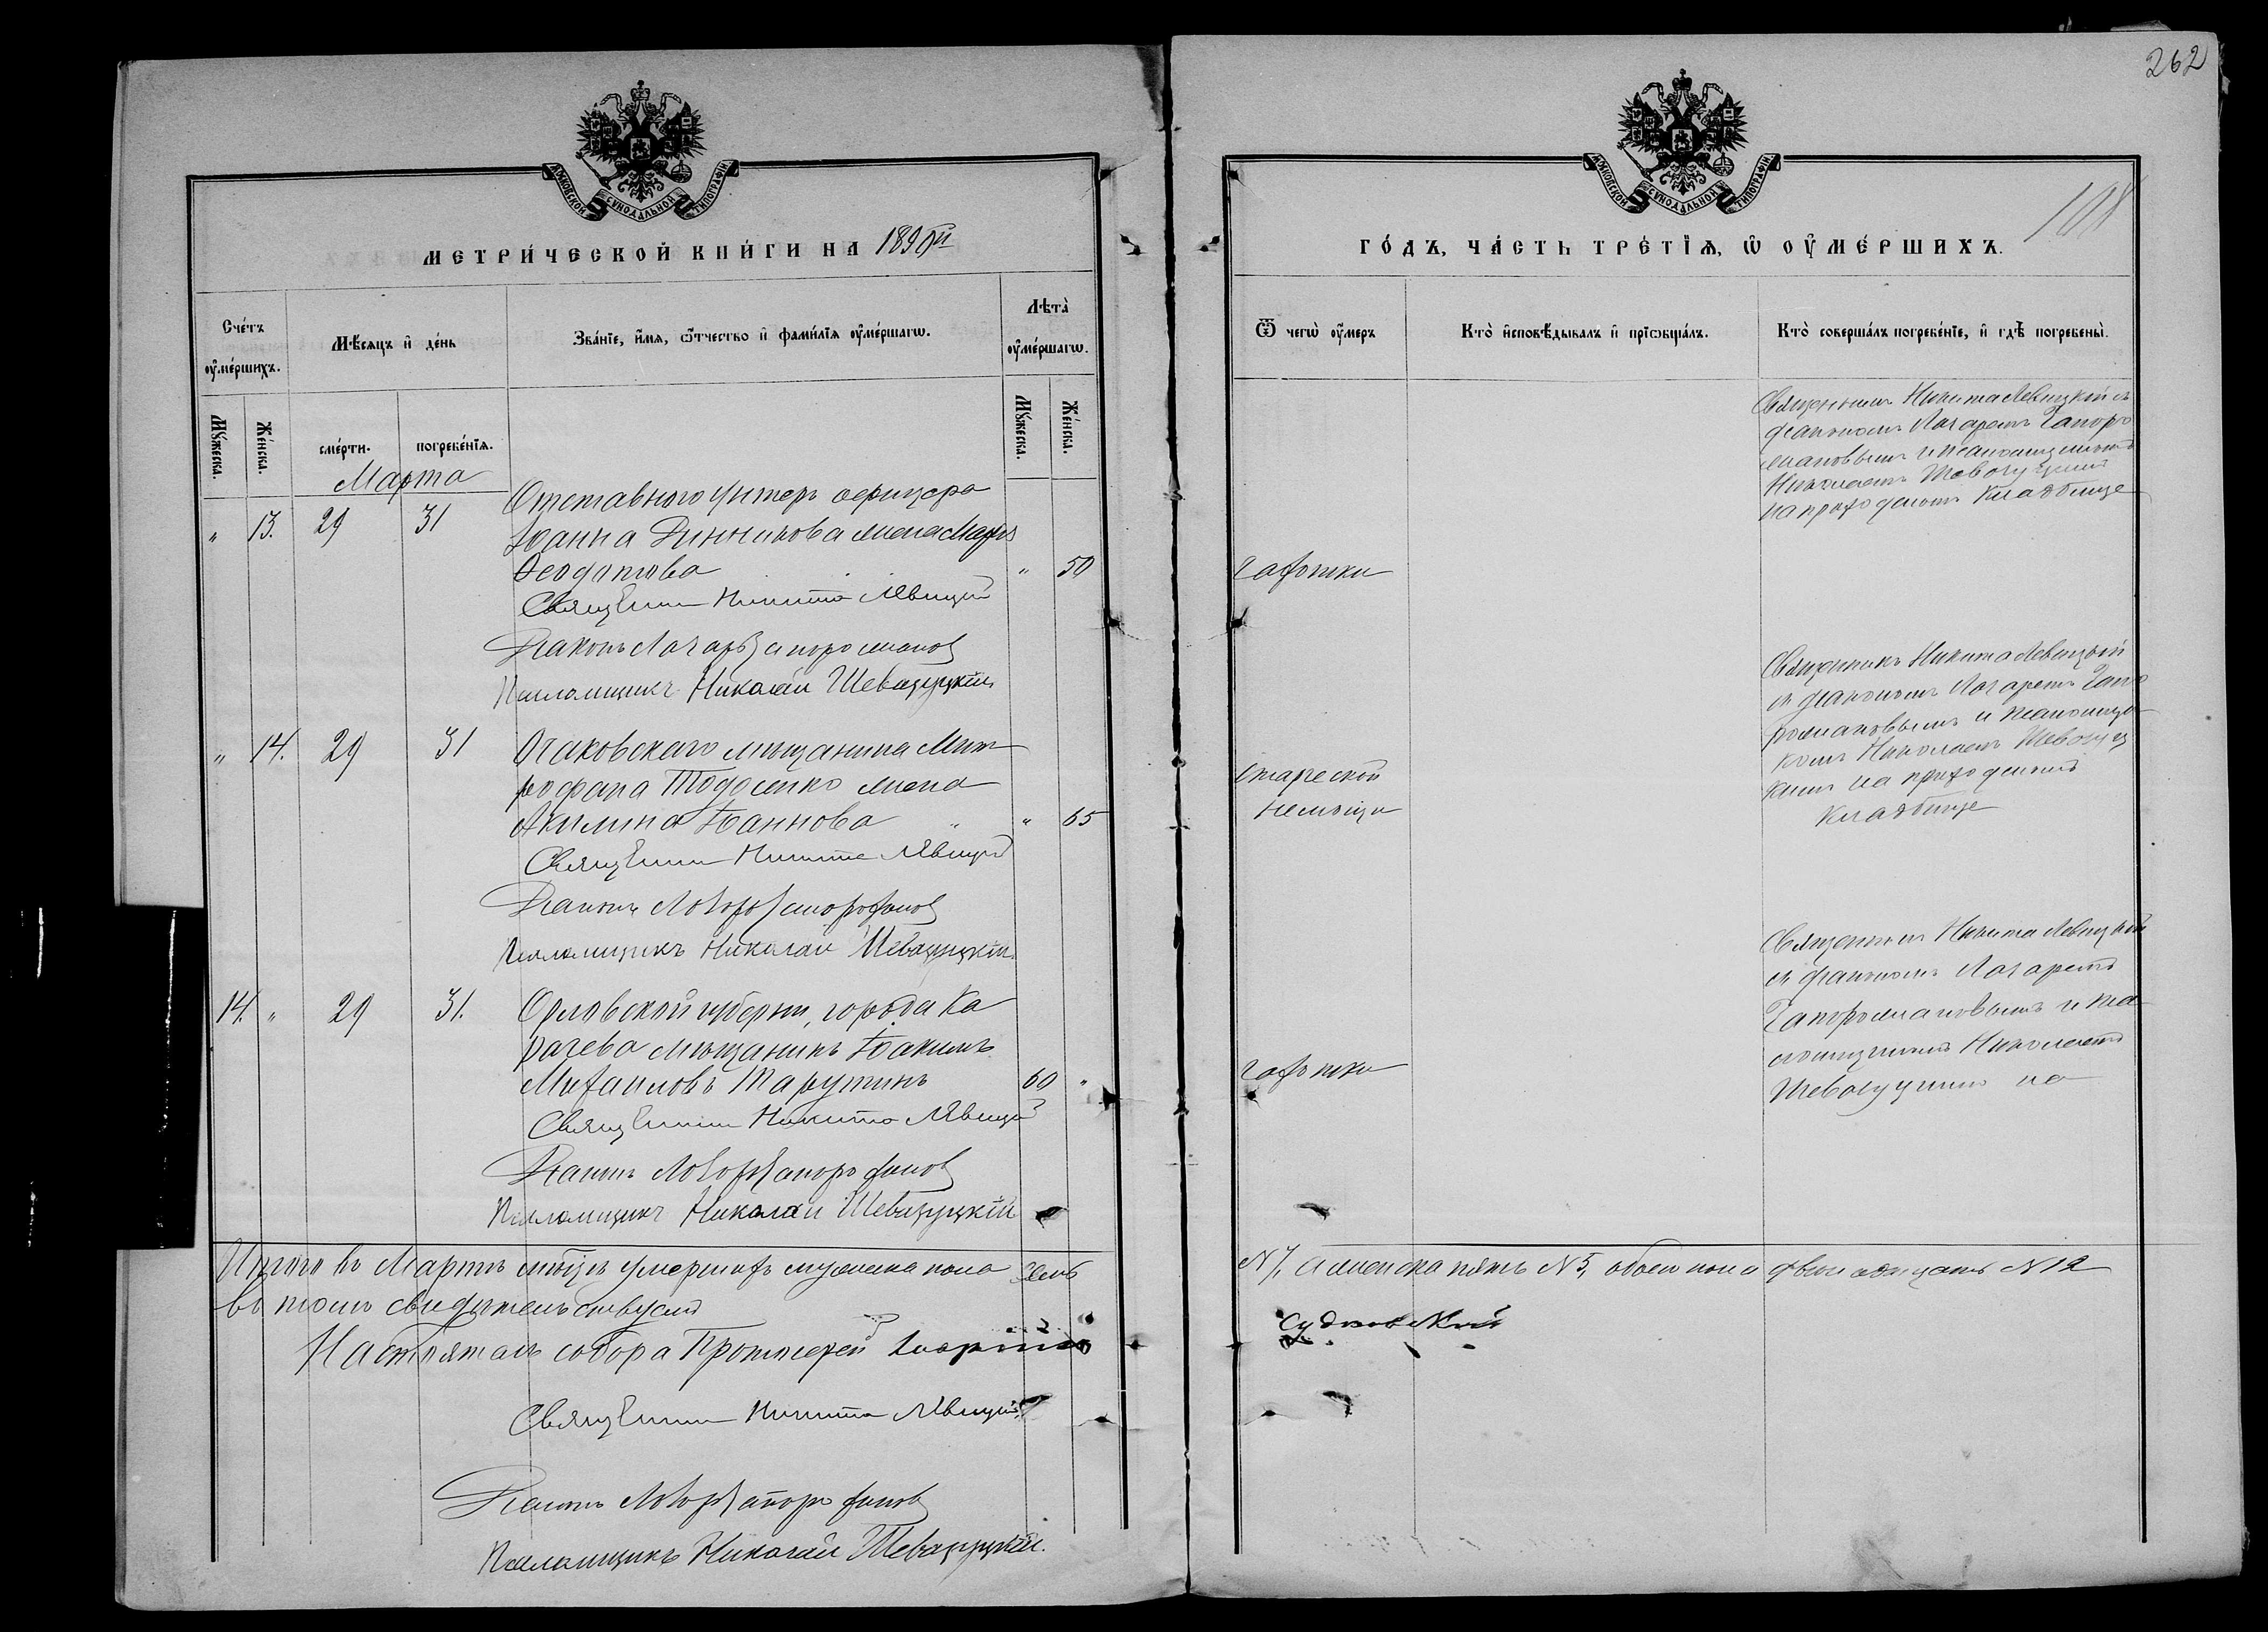 262
108
МОСКОВСКОЙ СѴНОДАЛЬНОЙ ТИПОГРАФІИ
МОСКОВСКОЙ СѴНОДАЛЬНОЙ ТИПОГРАФІИ
МЕТРИ́ЧЕСКОЙ КНИ́ГИ НА 1890й
ГО́ДЪ, ЧА́СТЬ ТРЕ́ТЇѦ, Ѡ ОУ҆МЕ́РШИХЪ.
Сче́тъ оу҆ме́ршихъ.
Мѣ́сѧцъ и҆ де́нь
Зва́нїе, и҆́мѧ, ѻ҆́тчество и҆ фами́лїѧ оу҆ме́ршагѡ.
Лѣта̀ оу҆ме́ршагѡ.
Ѿ чегѡ̀ оу҆́меръ
Кто̀ и҆сповѣ́дывалъ и҆ прїѡбща́лъ.
Кто̀ соверша́лъ погребе́нїе, и҆ гдѣ̀ погребены̀.
Мꙋ́жеска.
Же́нска.
сме́рти.
погребе́нїѧ.
Мꙋ́жеска.
Же́нска.
Марта
" 13. 29 31
Отставного Унтеръ офицера
Іоанна Динникова жена
Феодотова " 50
Священникъ Никита Левицкій
Діаконъ Лазарь Запоромановъ
Псаломщикъ Николай Шевазуцкій
чахотки
Священникъ Никита Левицкій съ
діакономъ Лазаремъ Запоро
мановымъ и псаломщикомъ
Николаемъ Шевазуцкимъ
на приходскомъ кладбище
" 14. 29 31
Очаковскаго мѣщанина Мит
рофана Тодосенко жена
Акилина Іоаннова " 65
Священникъ Никита Левицкій
Діаконъ Лазарь Запоромановъ
Псаломщикъ Николай Шевазуцкій.
старческой
немощи
Священникъ Никита Левицкій
съ діакономъ Лазаремъ Запо
романовымъ и псаломщи
комъ Николаемъ Шевазуц
кимъ на приходскомъ
кладбище
14. " 29 31.
Орловской губерніи, города Ка
рачева мѣщанинъ Іоакимъ
Михаиловъ Тарутинъ 60 "
Священникъ Никита Левицкій
Діаконъ Лазарь Запоромановъ
Псаломщикъ Николай Шевазуцкій
чахотки
Священникъ Никита Левицкій
съ діакономъ Лазаремъ
Запоромановымъ и пса
ломщикомъ Николаемъ
Шевазуцкимъ на
Итого въ Мартѣ мѣсяцѣ умершихъ мужеска пола семь
N 7, а женска пять N 5, обоего пола двенадцать N 12
въ томъ свидетельствуемъ
Настоятель собора Протоіерей Георгій
Судковскій
Священникъ Никита Левицкій
Діаконъ Лазарь Запоромановъ
Псаломщикъ Николай Шевазуцкій.